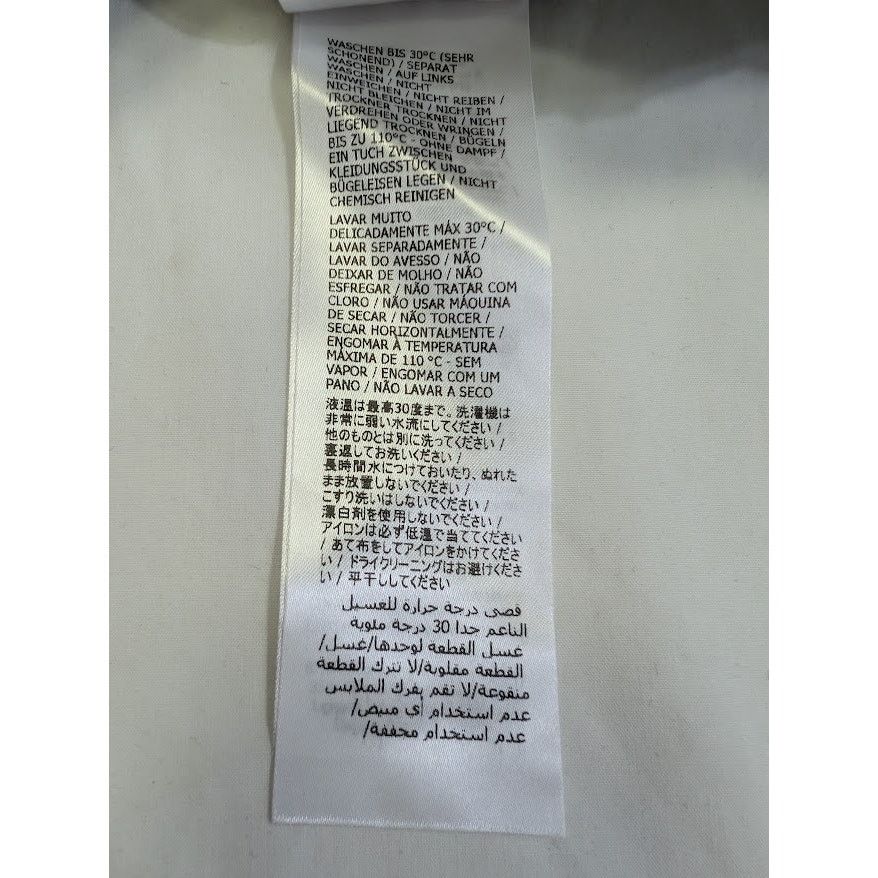 WASCHEN BIS 30°C (SEHR
SCHONEND) / SEPARAT
WASCHEN / AUF LINKS
EINWEICHEN / NICHT
NICHT BLEICHEN / NICHT REIBEN /
TROCKNER TROCKNEN / NICHT IM
VERDREHEN ODER WRINGEN / NICHT
LIEGEND TROCKNEN / BÜGELN
BIS ZU 110°C - OHNE DAMPF /
EIN TUCH ZWISCHEN
KLEIDUNGSSTÜCK UND
BÜGELEISEN LEGEN / NICHT
CHEMISCH REINIGEN
LAVAR MUITO
DELICADAMENTE MÁX 30°C /
LAVAR SEPARADAMENTE /
LAVAR DO AVESSO / NÃO
DEIXAR DE MOLHO / NÃO
ESFREGAR / NÃO TRATAR COM
CLORO / NÃO USAR MÁQUINA
DE SECAR / NÃO TORCER /
SECAR HORIZONTALMENTE /
ENGOMAR À TEMPERATURA
MÁXIMA DE 110 °C - SEM
VAPOR / ENGOMAR COM UM
PANO / NÃO LAVAR A SECO
液温は最高30度まで。洗濯機は
非常に弱い水流にしてください /
他のものとは別に洗ってください /
裏返してお洗いください /
長時間水につけておいたり、ぬれた
まま放置しないでください /
こすり洗いはしないでください /
漂白剤を使用しないでください /
アイロンは必ず低温で当ててください
/ あて布をしてアイロンをかけてくださ
い / ドライクリーニングはお避けくださ
い / 平干ししてください
قصى درجة حرارة للغسيل
الناعم جدا 30 درجة مئوية
غسل القطعة لوحدها/غسل/
القطعة مقلوبة/لا تترك القطعة
منقوعة/لا تقم بفرك الملابس
عدم استخدام أي مبيض/
عدم استخدام مجففة/